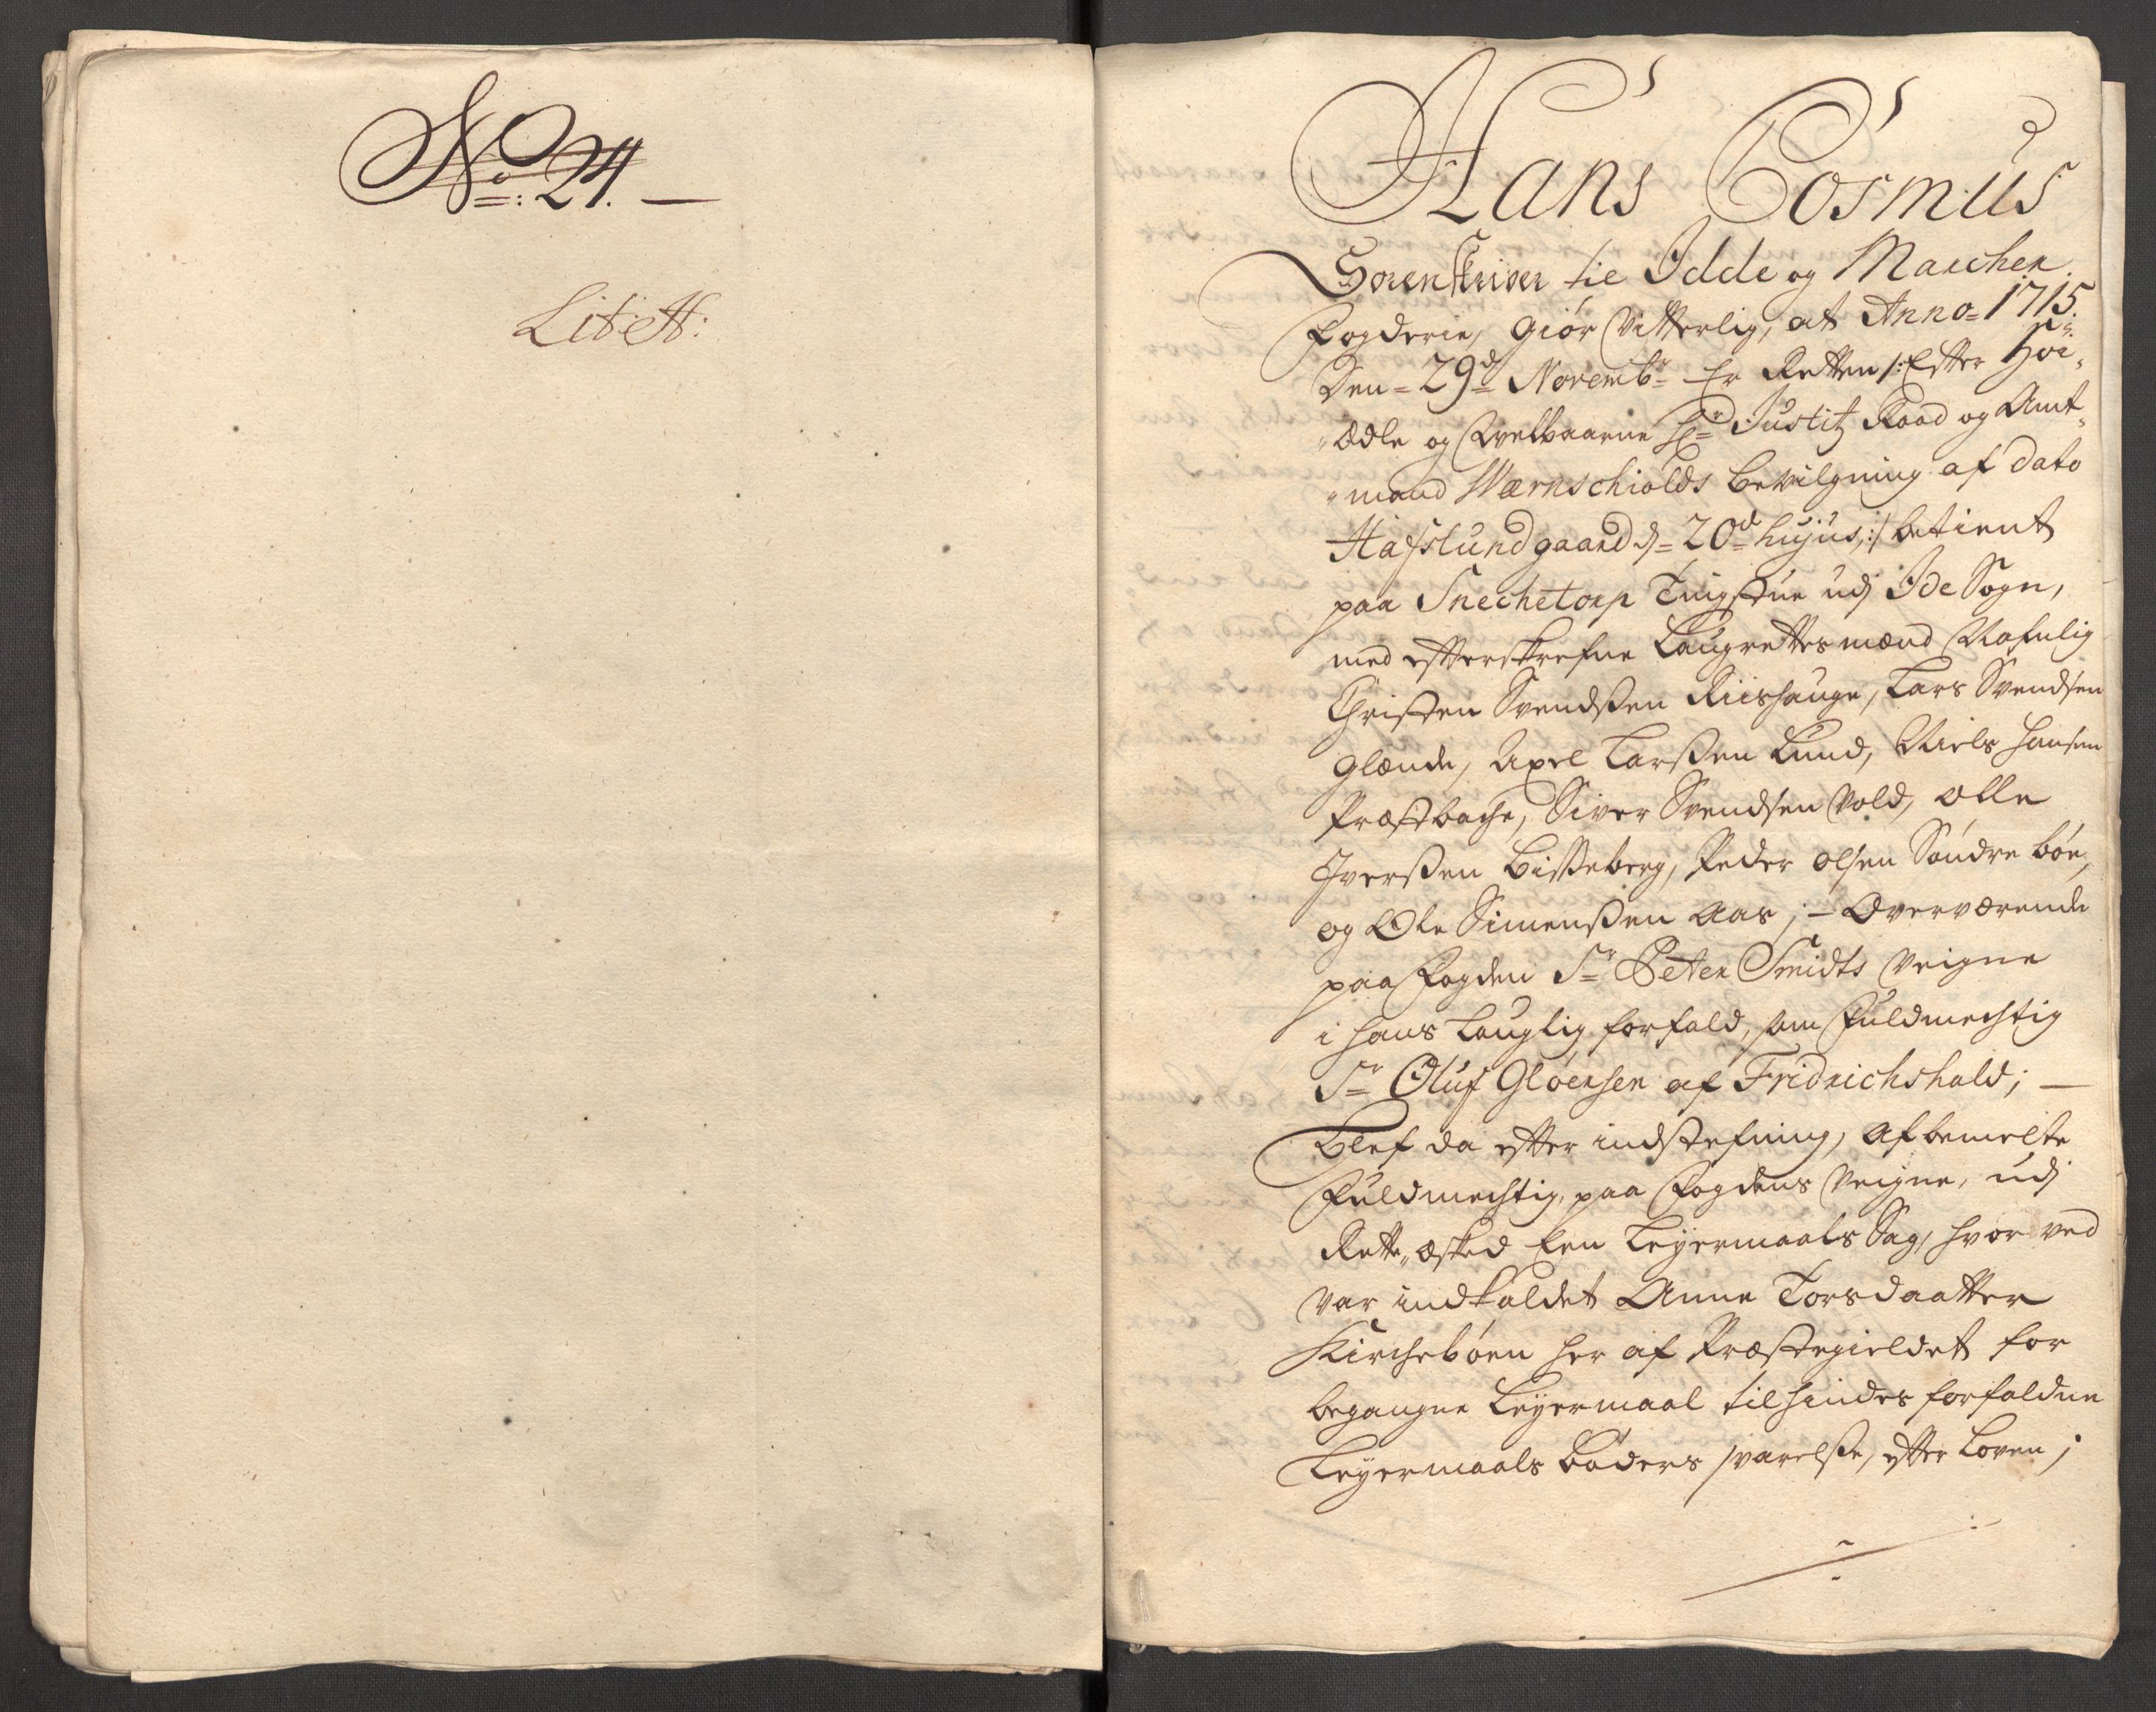 No: 24. —
Lit: H:
Hans Cosmus
Sorenskriver til Idde og Marchen
fogderie, Giør Vitterlig, at Anno 1715.
Den 29d Novembr Er Retten /: Efter Høi-
Ædle og Velbaarne Hr Justitz Raad og Amt-
mand Wærnschiolds bevilgning af dato
Hafslund gaard d. 20d hujus, :/ betient
paa Snechetorp Tingstue udj Ide Sogn,
med efterskrefne Laugrettes mænd Nafnlig
Christen Svendsen Riishauge, Lars Svendsen
Glænde, Axel Larssen Lund, Niels Hansen
Præstbache, Siver Svendsen Vold, Olle
Iverssen Bisseberg, Peder Olsen Søndre bøe,
og Ole Simenssen Aas; — Overværende
paa fogden Sr Peter Smidts Veigne
i hans lauglig forfald, som fuldmechtig
Sr Oluf Gløersen af Fridrichshald; —
Blef da efter indstefning, af bemelte
fuldmechtig, paa fogdens Veigne, udj
Rette æsked Een Leyermaals Sag, hvor ved
var indkaldet Anne Torsdaatter
Kirchebøen her af Præstegieldet for
begangne Leyermaal til hindes forfaldne
Leyermaals bøders svarelsse, efter Loven;